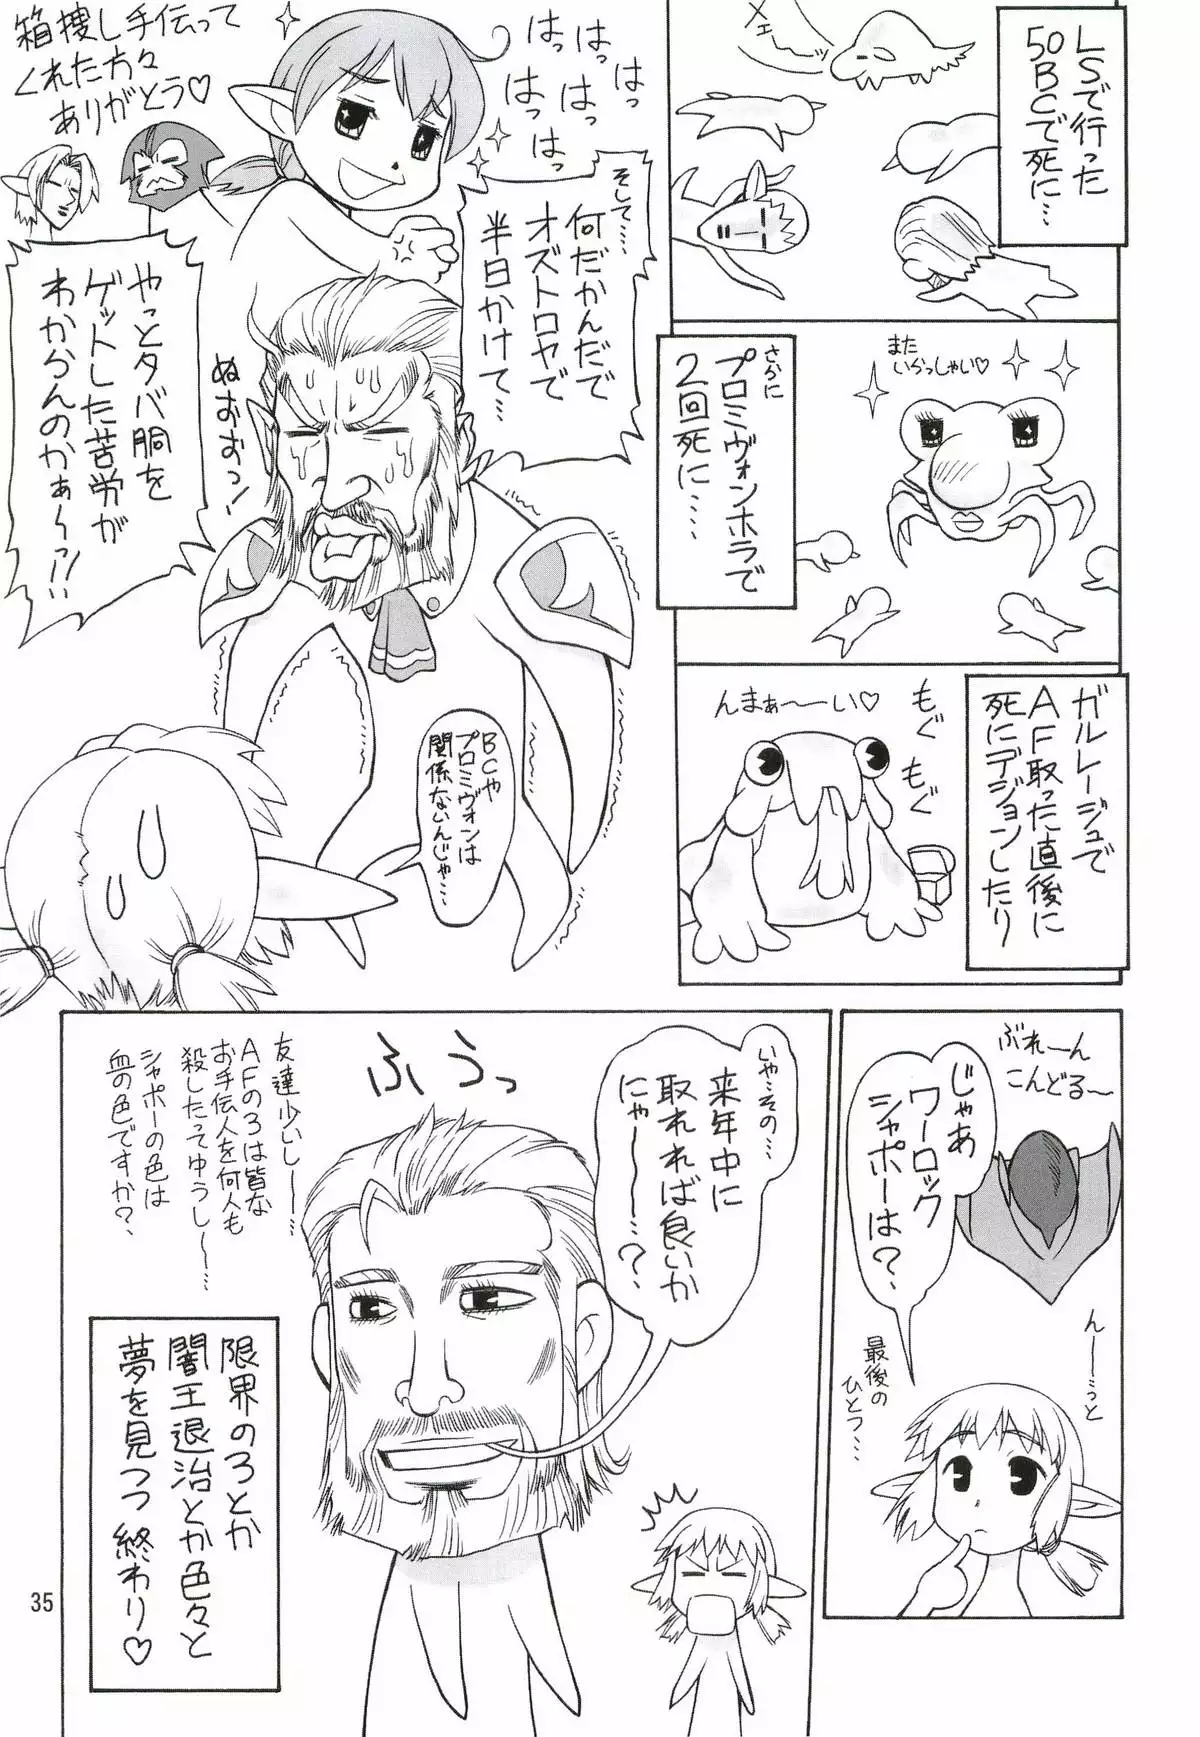 LSで行った
50BCで死に…
メェ〜
また
いらっしゃい♡
さらに
プロミヴォンホラで
2回死に……
ガルレージュで
AF取った直後に
死にデジョンしたり
んまぁ〜〜い♡
もぐ
もぐ
そして……
何だかんだで
オズトロヤで
半日かけて…
はっ
はっ
はっ
はっ
はっ
はっ
箱捜し手伝って
くれた方々
ありがとう♡
ぬおおっ!
やっとタバ胴を
ゲットした苦労が
わからんのかぁ〜っ!!
BCや
プロミヴォンは
関係ないんじゃ…
ぶれーん
こんどる〜
じゃあ
ワーロック
シャポーは?
んーぅと
最後の
ひとつ…
いや…その…
来年中に
取れれば良いか
にゃ〜…?
ふうっ
友達少いし〜…
AFのろは皆な
お手伝人を何人も
殺したってゆうし〜…
シャポーの色は
血の色ですか?
限界のろとか
闇王退治とか色々と
夢を見つつ 終わり♡
35